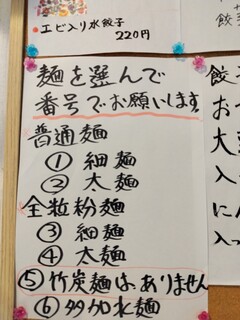 ●エビ入り水餃子
220円
餃
麺を選んで
番号でお願いします
普通麺
① 細麺
② 太麺
全粒粉麺
③ 細麺
④ 太麺
⑤ 竹炭麺は、ありません
⑥ 多加水麺
餃子
お
大
入
に
入っ